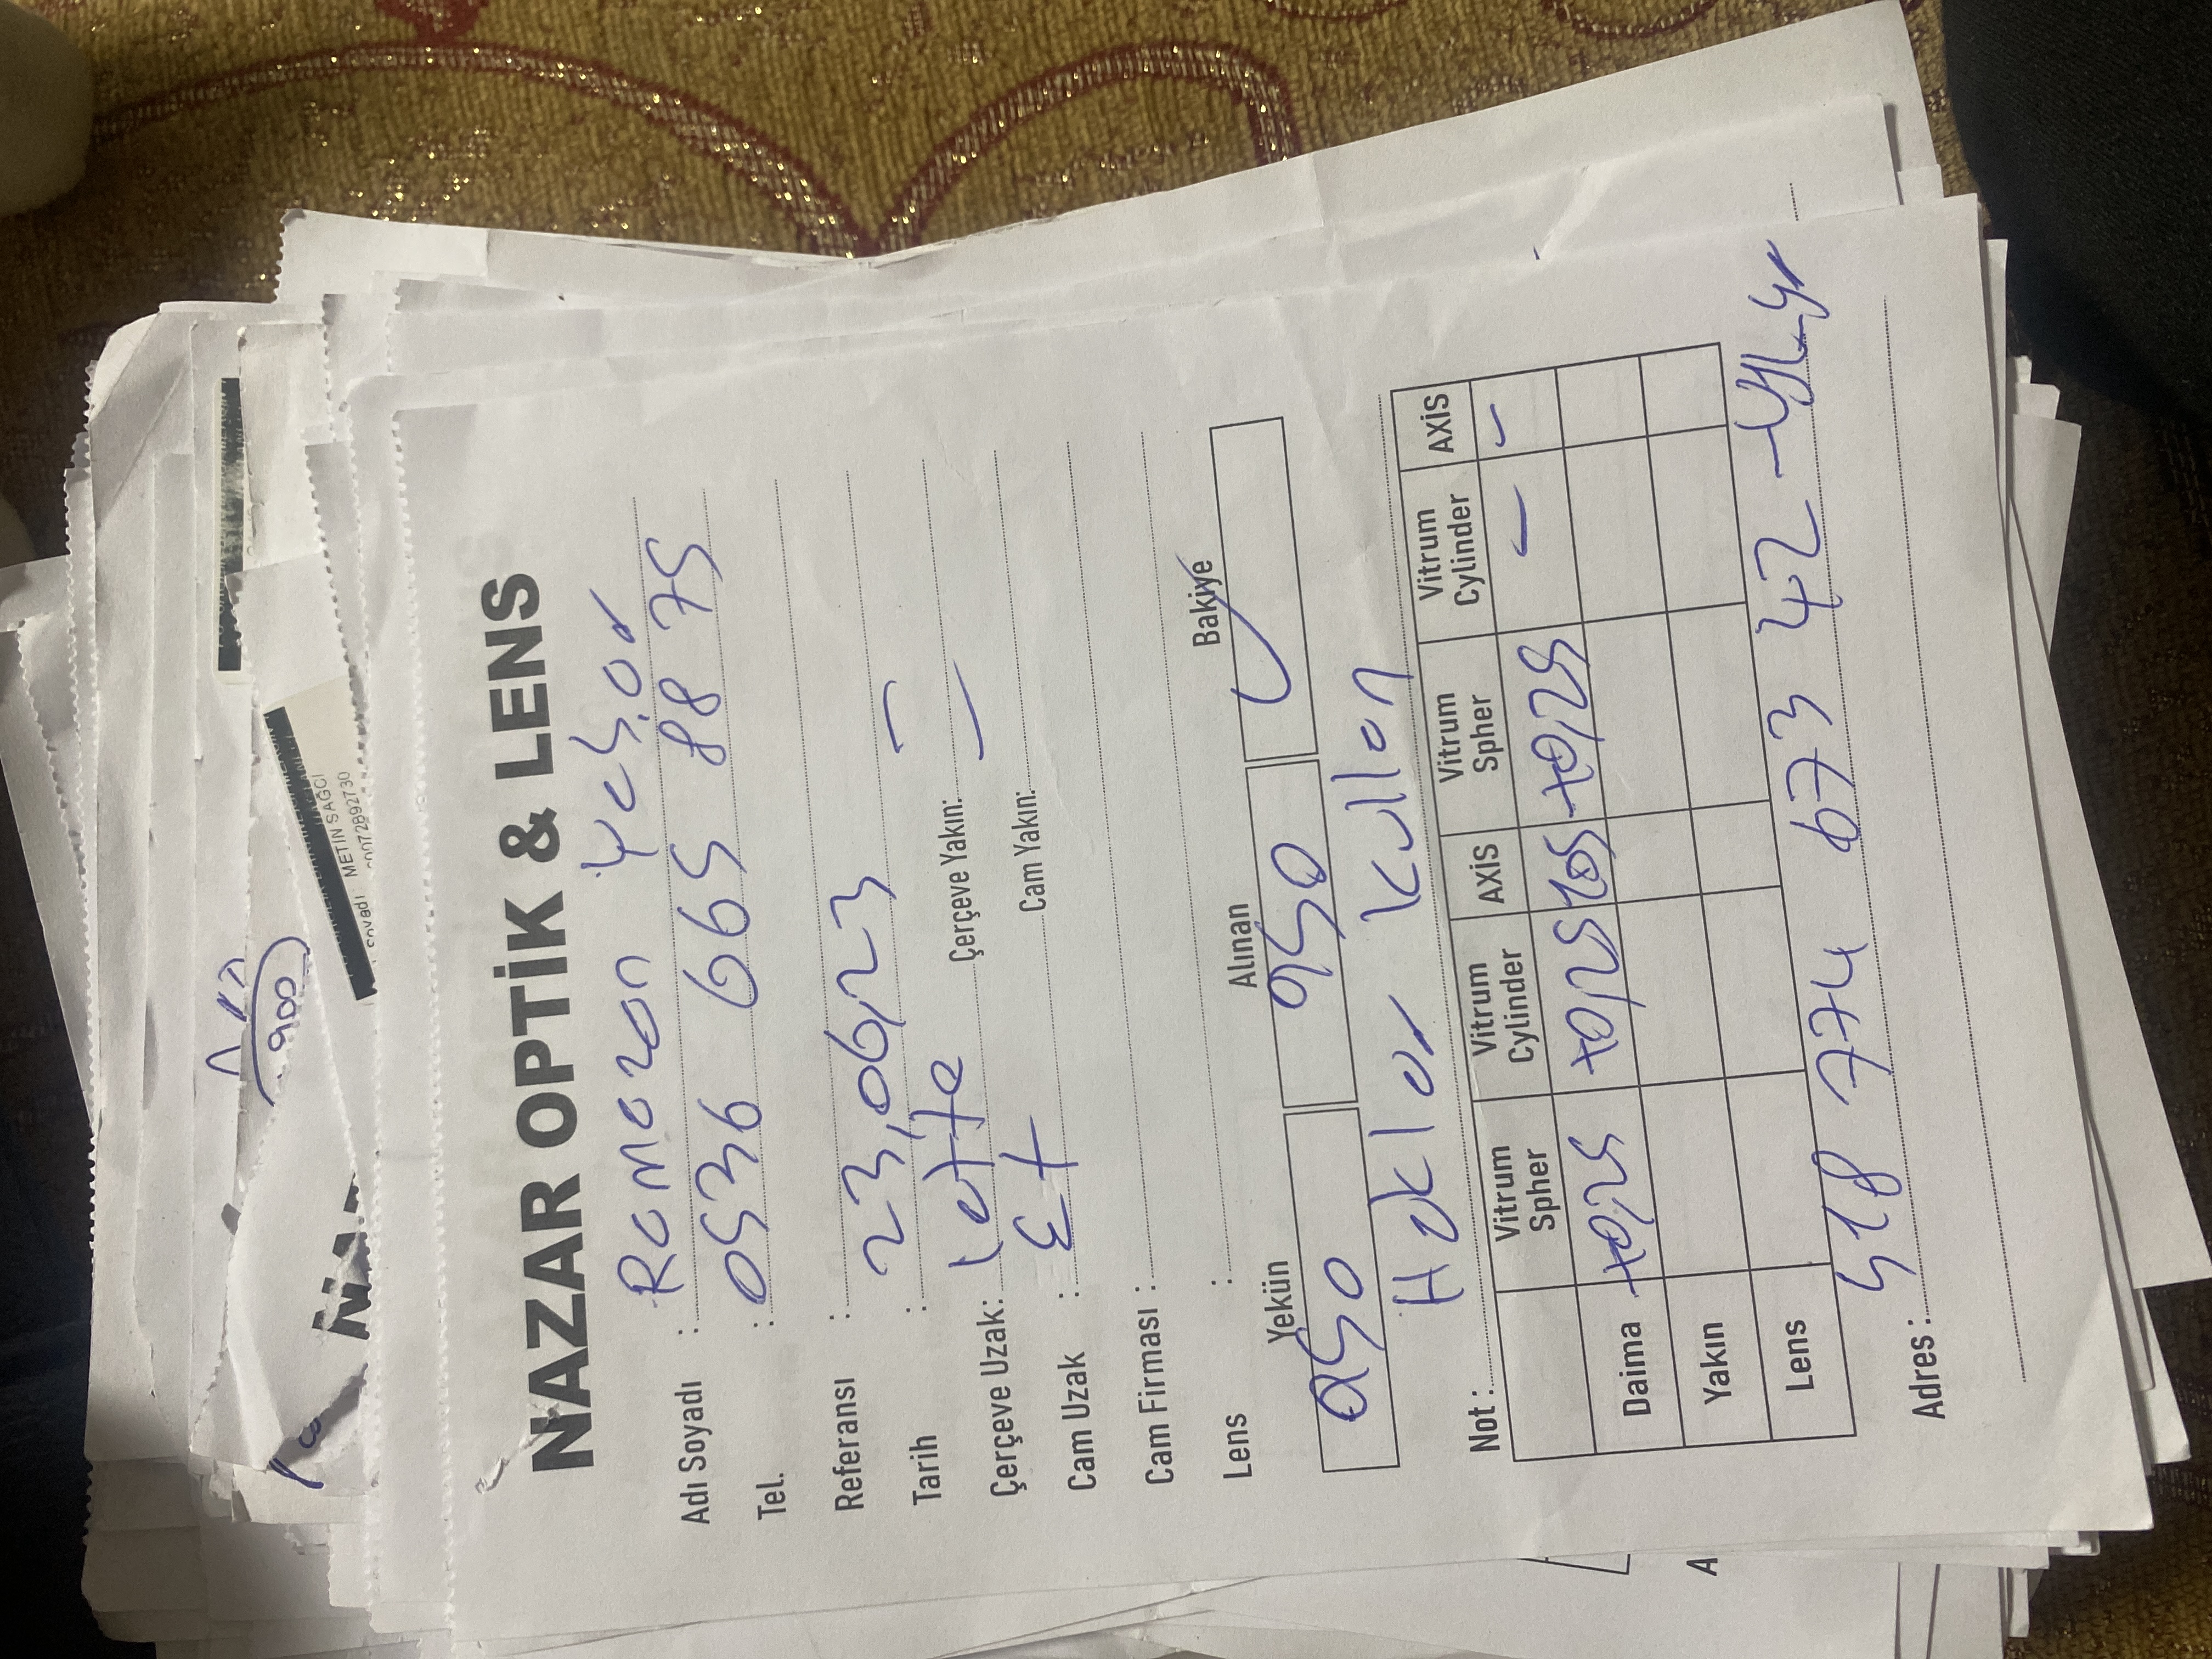 900
METİN SAĞCI
Soyadı
NAZAR OPTİK & LENS
Adı Soyadı : Ramazan Yaşar
Tel. : 0536 665 88 75
Referansı :
Tarih : 23,06,23
Çerçeve Uzak: Çerçeve Yakın: -
Cam Uzak : Cam Yakın: -
Cam Firması :
Lens :
Yekün Alınan Bakiye
950 950 ✓
Not : Haklar kullan
Vitrum Spher Vitrum Cylinder AXİS Vitrum Spher Vitrum Cylinder AXİS
Daima +0,25 +0,25 105 +0,25 - -
Yakın
Lens
518 774 673 42
Adres :